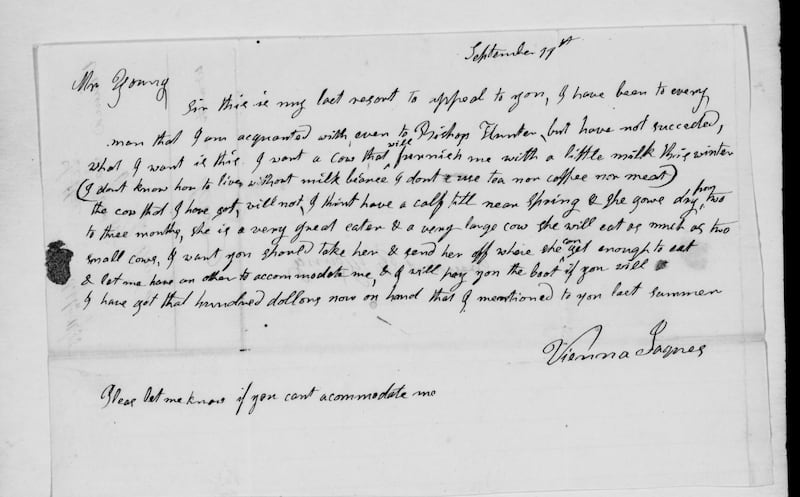 September 11th
Mr Young
Sir this is my last resort to appeal to you, I have been to every
man that I am acquanted with, even to Bishop Hunter, but have not succeded,
what I want is this. I want a cow that will furnnish me with a little milk this winter
(I dont know how to live without milk I dont use tea nor coffee nor meat)
the cow that I have got, will not I think have a calf till near Spring & she gows dry from two
to three months, she is a very great eater & a very large cow she will eat as much as two
small cows, I want you should take her & send her off where she can get enough to eat
& let me have an other to accommodate me, & I will pay you the boot if you will
I have got that hundred dollors now on hand that I mentioned to you last summer
Vienna Jaques
Pleas let me know if you cant acommodate me